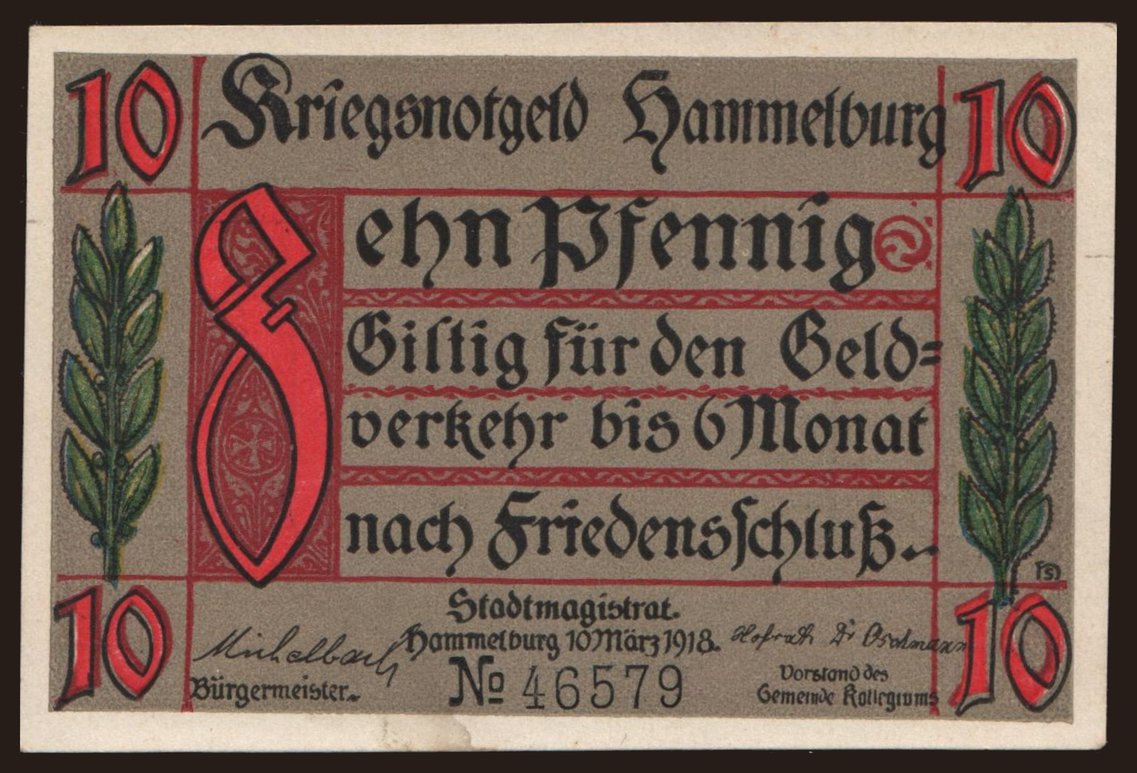 10 Kriegsnotgeld Hammelburg 10
Zehn Pfennig
Giltig für den Geld=
verkehr bis 6 Monat
nach Friedensschluß.
FS
10 Stadtmagistrat. 10
Hammelburg 10 März 1918.
Michelbach Hofrath Dr
Bürgermeister.
No 46579
Vorstand des
Gemeinde Kollegiums